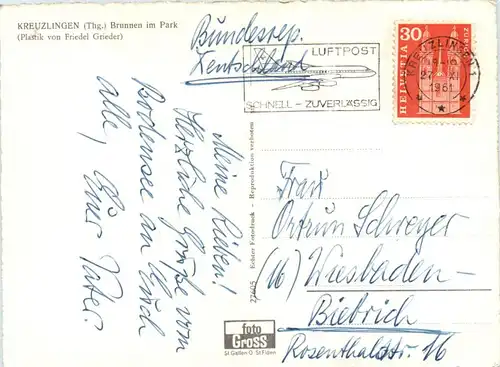 KREUZLINGEN (Thg.) Brunnen im Park
(Plastik von Friedel Grieder)
Meine Lieben!
Herzliche Grüße vom
Bodensee an Euch
alle, Euer Vater.
22605 Echter Fotodruck - Reproduktion verboten
foto
Gross
St. Gallen O St. Fiden
Bundesrep.
Deutschland
LUFTPOST
SCHNELL – ZUVERLÄSSIG
KREUZLINGEN 1
XI
1961
30
HELVETIA
Frau
Ortrun Schweyer
(16) Wiesbaden-
Biebrich
Rosenthalstr. 16